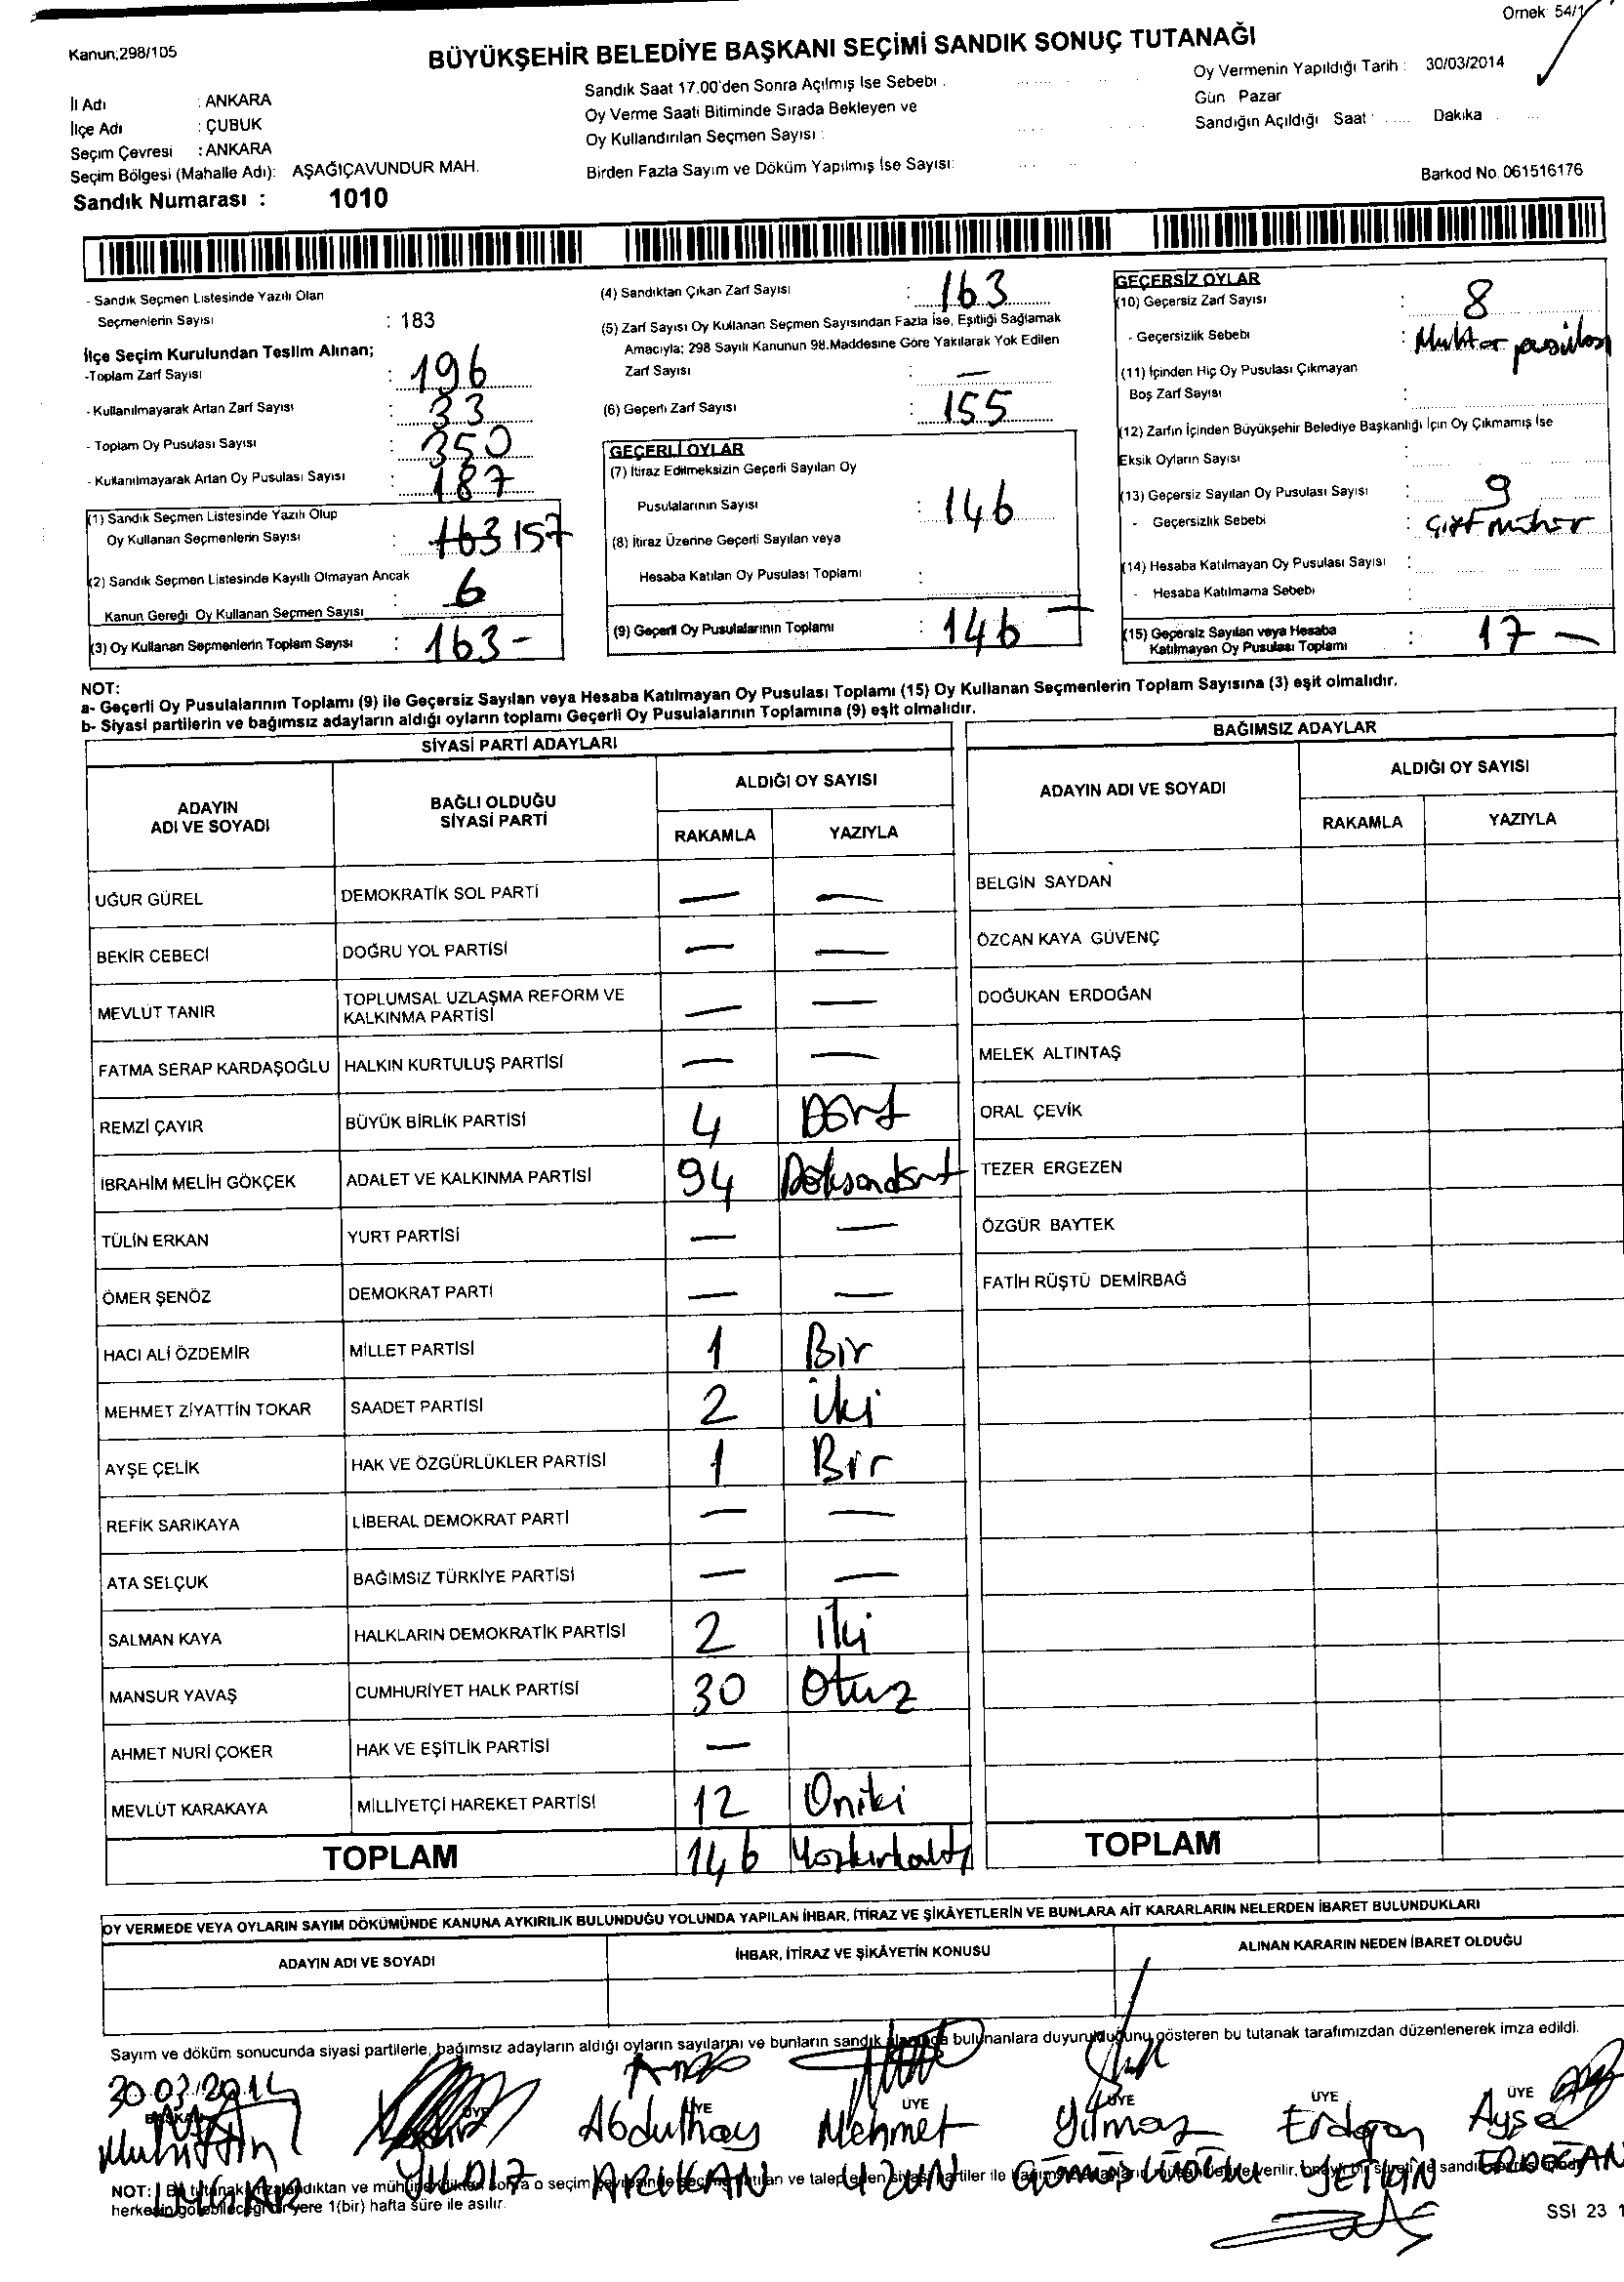 Örnek: 54/1
Kanun;298/105
BÜYÜKŞEHİR BELEDİYE BAŞKANI SEÇİMİ SANDIK SONUÇ TUTANAĞI
İl Adı : ANKARA
İlçe Adı : ÇUBUK
Seçim Çevresi : ANKARA
Seçim Bölgesi (Mahalle Adı): AŞAĞIÇAVUNDUR MAH.
Sandık Numarası : 1010
Sandık Saat 17.00'den Sonra Açılmış İse Sebebi .
Oy Verme Saati Bitiminde Sırada Bekleyen ve
Oy Kullandırılan Seçmen Sayısı :
Birden Fazla Sayım ve Döküm Yapılmış İse Sayısı:
Oy Vermenin Yapıldığı Tarih : 30/03/2014
Gün Pazar
Sandığın Açıldığı Saat : Dakika
Barkod No. 061516176
- Sandık Seçmen Listesinde Yazılı Olan
Seçmenlerin Sayısı : 183
İlçe Seçim Kurulundan Teslim Alınan;
-Toplam Zarf Sayısı : 196
- Kullanılmayarak Artan Zarf Sayısı : 33
- Toplam Oy Pusulası Sayısı : 350
- Kullanılmayarak Artan Oy Pusulası Sayısı : 187
(1) Sandık Seçmen Listesinde Yazılı Olup
Oy Kullanan Seçmenlerin Sayısı : 163 157
(2) Sandık Seçmen Listesinde Kayıtlı Olmayan Ancak
Kanun Gereği Oy Kullanan Seçmen Sayısı : 6
(3) Oy Kullanan Seçmenlerin Toplam Sayısı : 163 -
(4) Sandıktan Çıkan Zarf Sayısı : 163
(5) Zarf Sayısı Oy Kullanan Seçmen Sayısından Fazla İse, Eşitliği Sağlamak
Amacıyla; 298 Sayılı Kanunun 98.Maddesine Göre Yakılarak Yok Edilen
Zarf Sayısı : —
(6) Geçerli Zarf Sayısı : 155
GEÇERLİ OYLAR
(7) İtiraz Edilmeksizin Geçerli Sayılan Oy
Pusulalarının Sayısı : 146
(8) İtiraz Üzerine Geçerli Sayılan veya
Hesaba Katılan Oy Pusulası Toplamı :
(9) Geçerli Oy Pusulalarının Toplamı : 146 —
GEÇERSİZ OYLAR
(10) Geçersiz Zarf Sayısı : 8
- Geçersizlik Sebebi : Muhtar pusulası
(11) İçinden Hiç Oy Pusulası Çıkmayan
Boş Zarf Sayısı :
(12) Zarfın İçinden Büyükşehir Belediye Başkanlığı İçin Oy Çıkmamış İse
Eksik Oyların Sayısı :
(13) Geçersiz Sayılan Oy Pusulası Sayısı : 9
- Geçersizlik Sebebi : Çift mühür
(14) Hesaba Katılmayan Oy Pusulası Sayısı :
- Hesaba Katılmama Sebebi :
(15) Geçersiz Sayılan veya Hesaba
Katılmayan Oy Pusulası Toplamı : 17 —
NOT:
a- Geçerli Oy Pusulalarının Toplamı (9) ile Geçersiz Sayılan veya Hesaba Katılmayan Oy Pusulası Toplamı (15) Oy Kullanan Seçmenlerin Toplam Sayısına (3) eşit olmalıdır.
b- Siyasi partilerin ve bağımsız adayların aldığı oyların toplamı Geçerli Oy Pusulalarının Toplamına (9) eşit olmalıdır.
SİYASİ PARTİ ADAYLARI
ADAYIN ADI VE SOYADI BAĞLI OLDUĞU SİYASİ PARTİ ALDIĞI OY SAYISI
RAKAMLA YAZIYLA
UĞUR GÜREL DEMOKRATİK SOL PARTİ — —
BEKİR CEBECİ DOĞRU YOL PARTİSİ — —
MEVLÜT TANIR TOPLUMSAL UZLAŞMA REFORM VE KALKINMA PARTİSİ — —
FATMA SERAP KARDAŞOĞLU HALKIN KURTULUŞ PARTİSİ — —
REMZİ ÇAYIR BÜYÜK BİRLİK PARTİSİ 4 Dört
İBRAHİM MELİH GÖKÇEK ADALET VE KALKINMA PARTİSİ 94 Doksandört
TÜLİN ERKAN YURT PARTİSİ — —
ÖMER ŞENÖZ DEMOKRAT PARTİ — —
HACI ALİ ÖZDEMİR MİLLET PARTİSİ 1 Bir
MEHMET ZİYATTİN TOKAR SAADET PARTİSİ 2 iki
AYŞE ÇELİK HAK VE ÖZGÜRLÜKLER PARTİSİ 1 Bir
REFİK SARIKAYA LİBERAL DEMOKRAT PARTİ — —
ATA SELÇUK BAĞIMSIZ TÜRKİYE PARTİSİ — —
SALMAN KAYA HALKLARIN DEMOKRATİK PARTİSİ 2 iki
MANSUR YAVAŞ CUMHURİYET HALK PARTİSİ 30 Otuz
AHMET NURİ ÇOKER HAK VE EŞİTLİK PARTİSİ —
MEVLÜT KARAKAYA MİLLİYETÇİ HAREKET PARTİSİ 12 Oniki
TOPLAM 146 Yüzkırkaltı
BAĞIMSIZ ADAYLAR
ADAYIN ADI VE SOYADI ALDIĞI OY SAYISI
RAKAMLA YAZIYLA
BELGİN SAYDAN
ÖZCAN KAYA GÜVENÇ
DOĞUKAN ERDOĞAN
MELEK ALTINTAŞ
ORAL ÇEVİK
TEZER ERGEZEN
ÖZGÜR BAYTEK
FATİH RÜŞTÜ DEMİRBAĞ
TOPLAM
OY VERMEDE VEYA OYLARIN SAYIM DÖKÜMÜNDE KANUNA AYKIRILIK BULUNDUĞU YOLUNDA YAPILAN İHBAR, İTİRAZ VE ŞİKÂYETLERİN VE BUNLARA AİT KARARLARIN NELERDEN İBARET BULUNDUKLARI
ADAYIN ADI VE SOYADI İHBAR, İTİRAZ VE ŞİKÂYETİN KONUSU ALINAN KARARIN NEDEN İBARET OLDUĞU
Sayım ve döküm sonucunda siyasi partilerle, bağımsız adayların aldığı oyların sayılarını ve bunların sandık alanında bulunanlara duyurulduğunu gösteren bu tutanak tarafımızdan düzenlenerek imza edildi.
30.03.2014
BAŞKAN ÜYE ÜYE ÜYE ÜYE ÜYE ÜYE
Muhittin Abdulhay Mehmet Yılmaz Erdoğan Ayşe
YILDIZ ARIKAN UZUN GÜMÜŞLÜOĞLU YETKİN ERDOĞAN
NOT: Bu tutanak imzalandıktan ve mühürlendikten sonra o seçim
herkesin görebileceği bir yere 1(bir) hafta süre ile asılır.
SSI 23 1